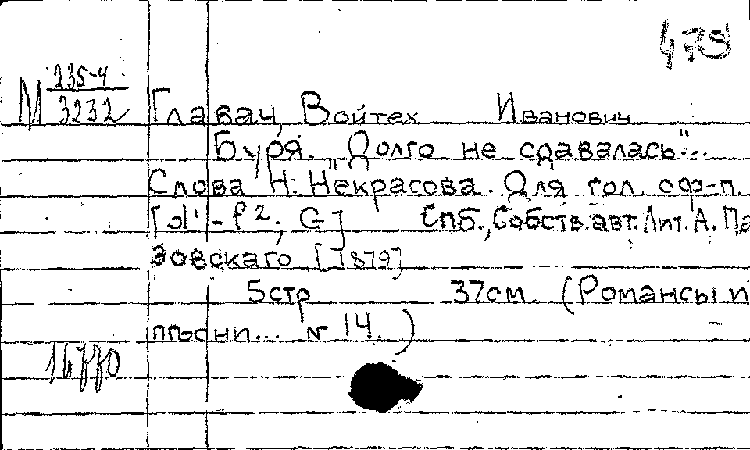 479
М 235-4
3232
Главач, Войтех Иванович
Буря. "Долго не сдавалась"...
Слова Н. Некрасова. Для гол. с ф-п.
[d¹-f²; G] Спб., Собств. авт. Лит. А. Па
зовскаго [1879]
5 стр 37см. (Романсы и
песни... № 14.)
16770